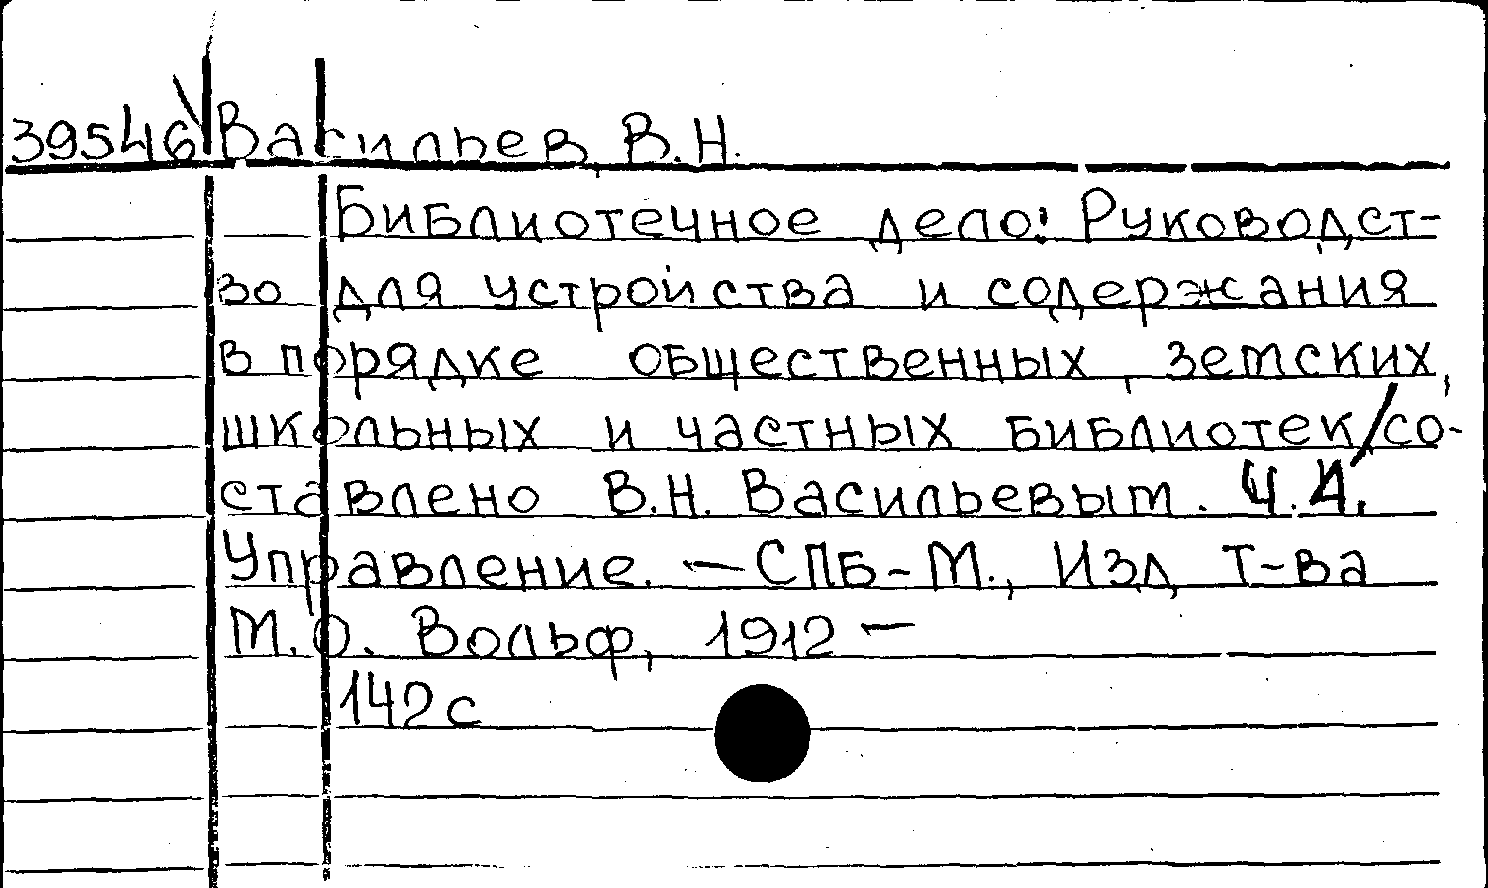 39546 Васильев, В.Н.
Библиотечное дело: Руководст-
во для устройства и содержания
в порядке общественных, земских,
школьных и частных библиотек/со-
ставлено В.Н. Васильевым. Ч.1.
Управление. — СПБ-М., Изд Т-ва
М.О. Вольф, 1912 —
142с